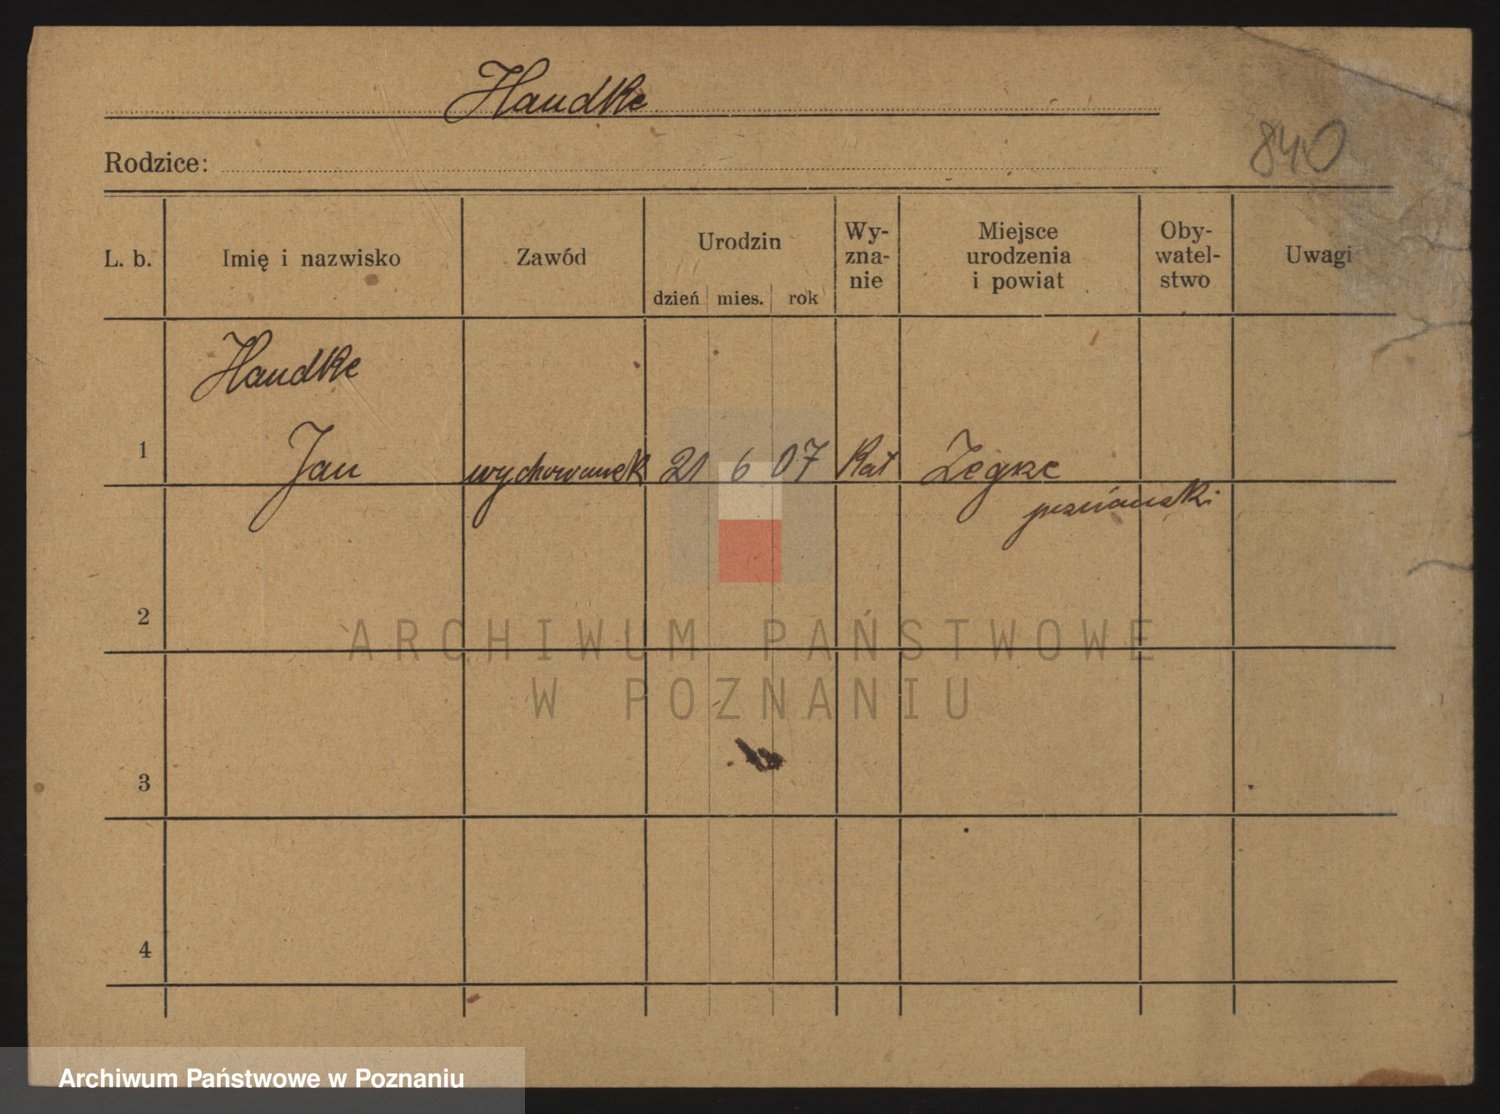 Handke
Rodzice:
840
L. b.
Imię i nazwisko
Zawód
Urodzin
dzień mies. rok
Wy-
zna-
nie
Miejsce
urodzenia
i powiat
Oby-
watel-
stwo
Uwagi
Handke
1 Jan wychowanek 21 6 07 Kat Zegrze
poznański
2
ARCHIWUM PAŃSTWOWE
W POZNANIU
3
4
Archiwum Państwowe w Poznaniu